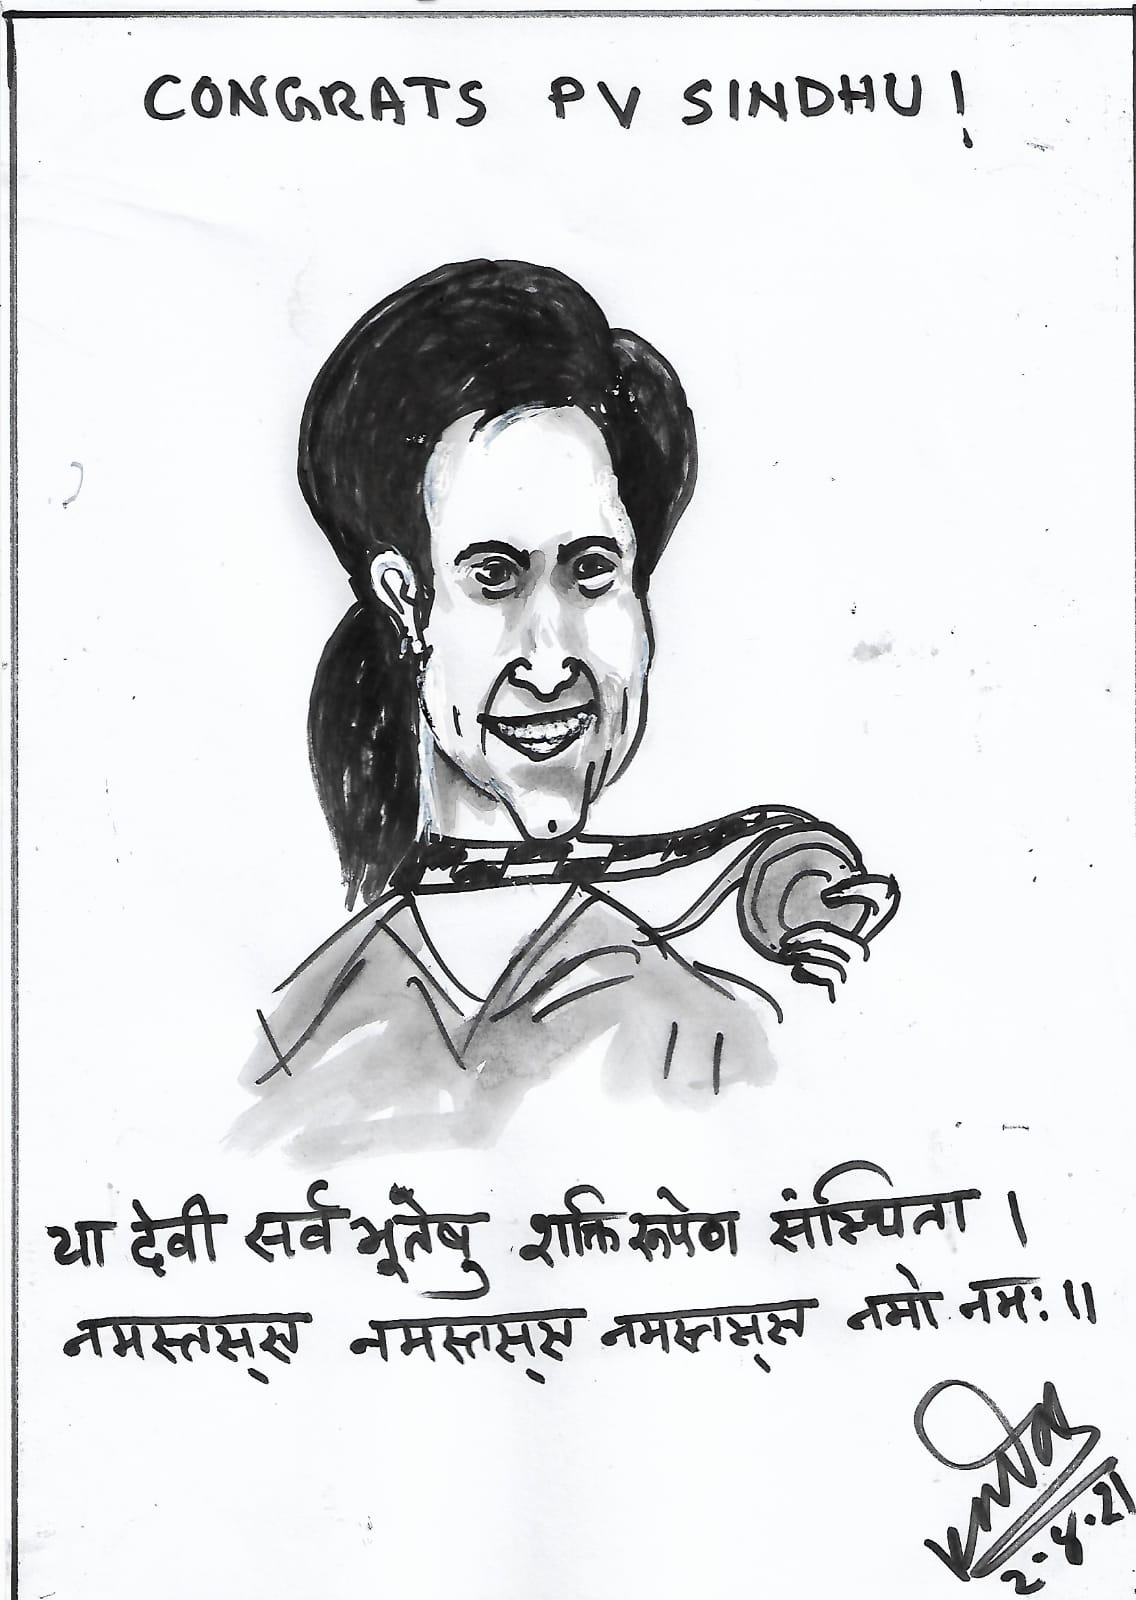 CONGRATS PV SINDHU!
या देवी सर्व भूतेषु शक्ति रूपेण संस्थिता ।
नमस्तस्स नमस्तस्स नमस्तस्स नमो नमः ॥
2.8.21